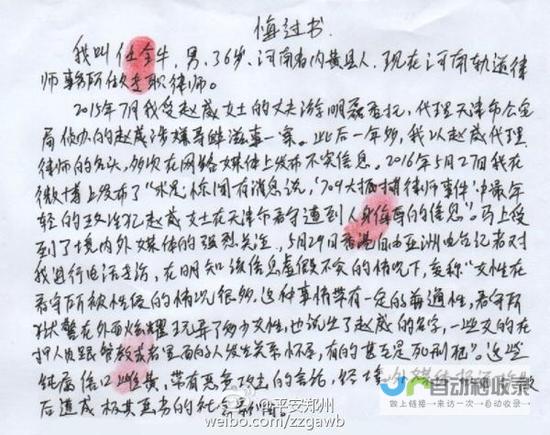 悔过书
我叫任全牛,男,36岁,河南省内黄县人,现在河南轨道律
师事务所做专职律师。
2015年7月我受赵威女士的丈夫游明磊委托,代理天津市公安
局侦办的赵威涉嫌寻衅滋事一案。此后一年多,我以赵威代理
律师的名义,多次在网络媒体上发布不实信息。2016年5月27日我在
微博上发布了“惊间有消息说,‘709大抓捕律师事件’中最年
轻的政治犯赵威女士在天津看守遭到人身侮辱的信息”。马上受
到了境内外媒体的强烈关注,5月29日香港自由亚洲电台记者对
我进行电话采访,在明知该信息虚假不实的情况下,妄称“女性在
看守所被性侵的情况很多,这种事情带有一定的普遍性,看守所
狱警在外面炫耀玩弄了多少女性,也说出了赵威的名字,一些女的在
押人员跟管教或者里面的人发生关系怀孕,有的甚至是死刑犯”。这些
纯属信口雌黄,带有恶意攻击的言论,经
后造成极其恶劣的社会影响。
@平安郑州
weibo.com/zzgawb
自动秒收录
来访一次-自动收录